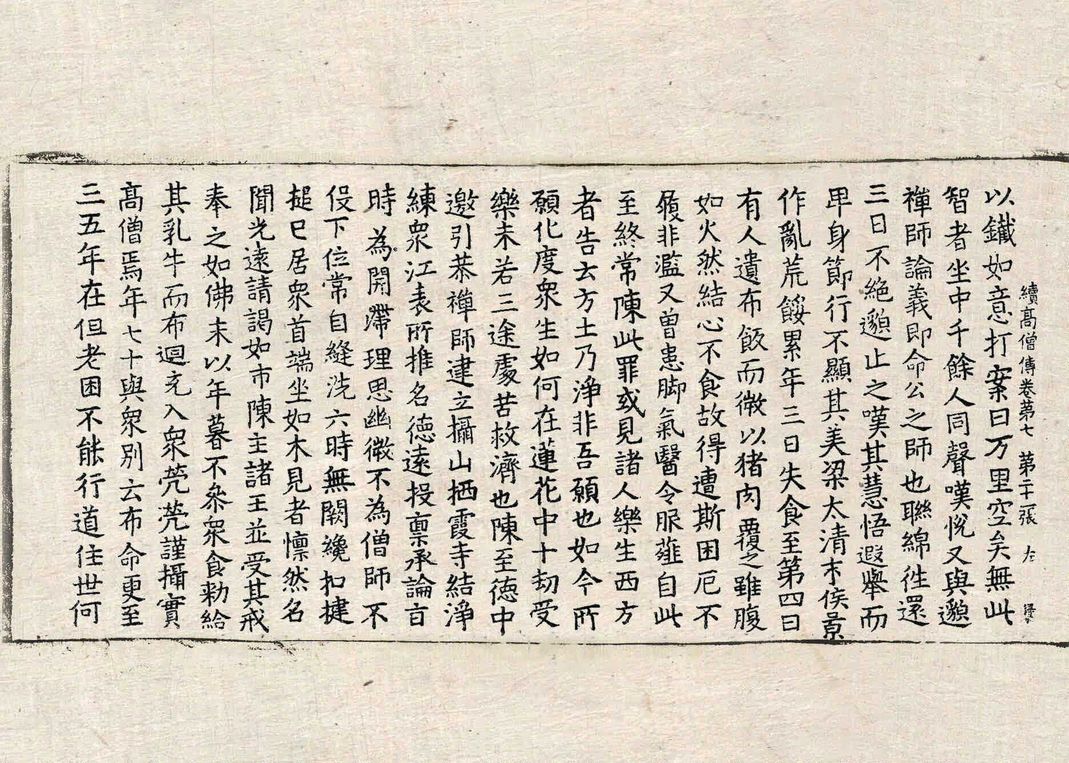 續高僧傳卷第七 第二十二張 左
以鐵如意打案曰万里空矣無此
智者坐中千餘人同聲嘆悅又與邈
禪師論義即命公之師也聯綿往還
三日不絕邈止之嘆其慧悟遐舉而
卑身節行不顯其美梁太清末侯景
作亂荒餒累年三日失食至第四日
有人遺布飯而微以猪肉覆之雖腹
如火然結心不食故得遭斯困厄不
履非濫又曾患脚氣醫令服薤自此
至終常陳此罪或見諸人樂生西方
者告云方土乃淨非吾願也如今所
願化度衆生如何在蓮花中十劫受
樂未若三途處苦救濟也陳至德中
邀引恭禪師建立攝山栖霞寺結淨
練衆江表所推名德遠投稟承論旨
時為開滯理思幽微不為僧師不
役下位常自縫洗六時無闕纔扣揵
搥已居衆首端坐如木見者懍然名
聞光遠請謁如市陳主諸王並受其戒
奉之如佛末以年暮不參衆食勑給
其乳牛而布迴充入衆茕茕謹攝實
高僧焉年七十與衆別云布命更至
三五年在但老困不能行道住世何